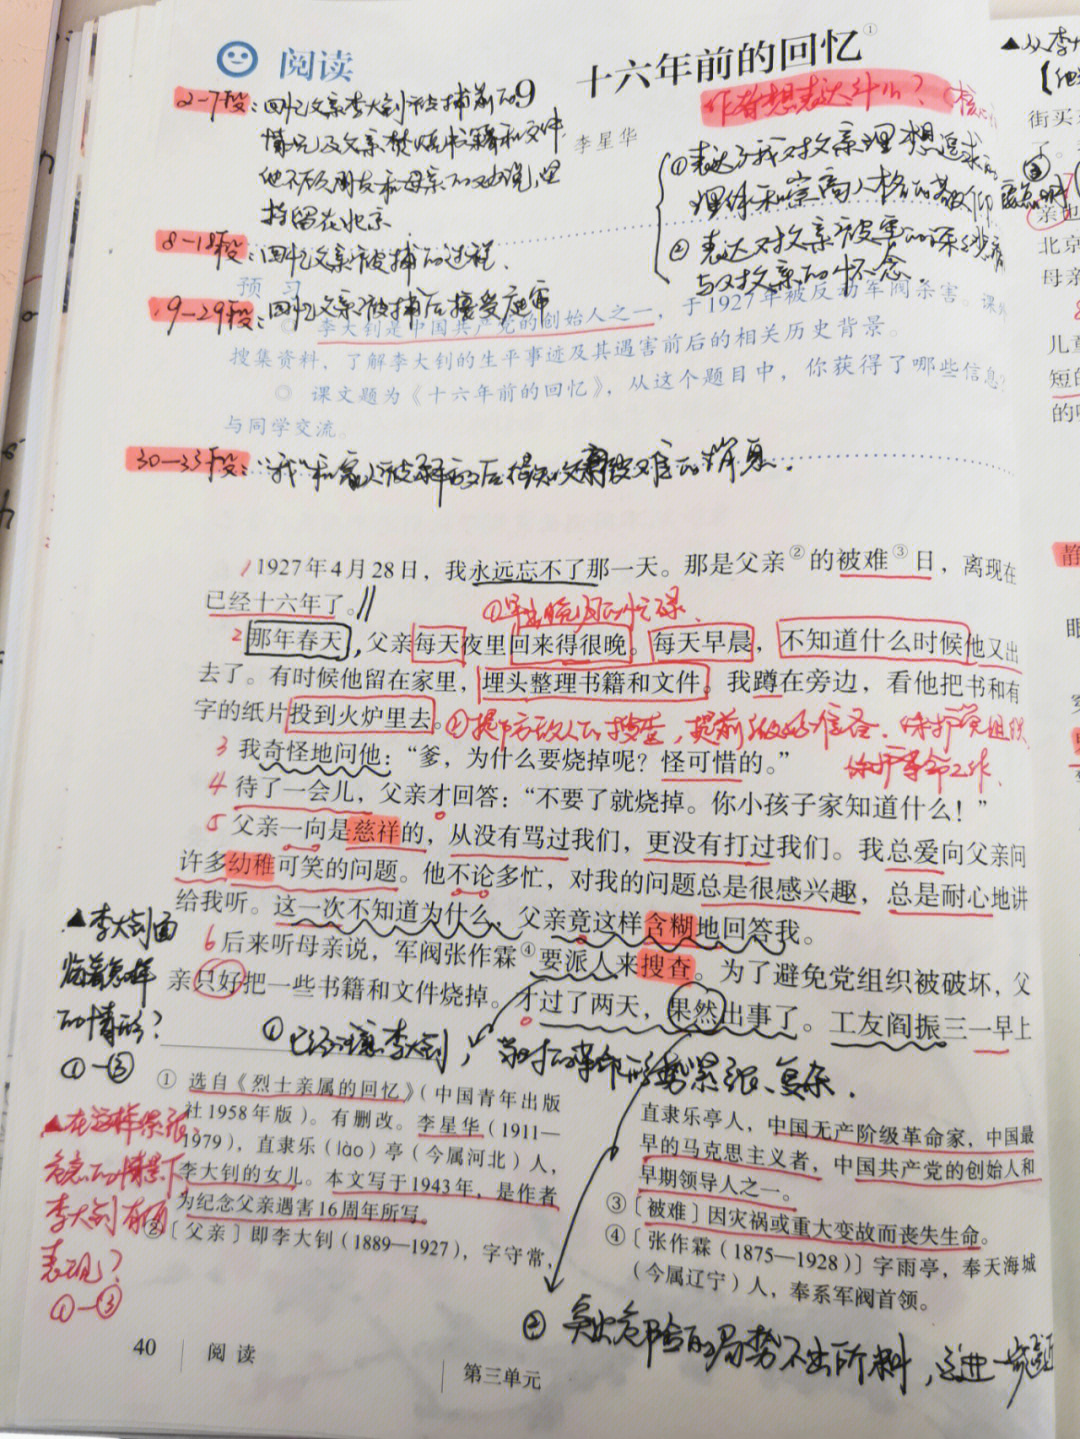 阅读
十六年前的回忆①
9
李星华
作者想表达什么？
2-7段：回忆父亲李大钊被捕前的
情况及父亲焚烧书籍和文件
他不顾朋友和母亲的劝说，坚
持留在北京
8-18段：回忆父亲被捕的过程．
9-29段：回忆父亲被捕后接受庭审
30-33段：“我”和家人被释放后得知父亲被难的消息．
①表达了我对父亲理想追求的
和崇高人格的敬仰
②表达对父亲被害的深沉
与对父亲的怀念．
预习
◎ 李大钊是中国共产党的创始人之一，于1927年被反动军阀杀害。课
搜集资料，了解李大钊的生平事迹及其遇害前后的相关历史背景。
◎ 课文题为《十六年前的回忆》，从这个题目中，你获得了哪些信息？
与同学交流。
1 1927年4月28日，我永远忘不了那一天。那是父亲②的被难③日，离现在
已经十六年了。
①早出晚归的忙碌
2 那年春天，父亲每天夜里回来得很晚。每天早晨，不知道什么时候他又出
去了。有时候他留在家里，埋头整理书籍和文件。我蹲在旁边，看他把书和有
字的纸片投到火炉里去。
②提防敌人的搜查，提前做好准备．保护党组织
保护革命工作．
3 我奇怪地问他：“爹，为什么要烧掉呢？怪可惜的。”
4 待了一会儿，父亲才回答：“不要了就烧掉。你小孩子家知道什么！”
5 父亲一向是慈祥的，从没有骂过我们，更没有打过我们。我总爱向父亲问
许多幼稚可笑的问题。他不论多忙，对我的问题总是很感兴趣，总是耐心地讲
给我听。这一次不知道为什么，父亲竟这样含糊地回答我。
6 后来听母亲说，军阀张作霖④要派人来搜查。为了避免党组织被破坏，父
亲只好把一些书籍和文件烧掉。才过了两天，果然出事了。工友阎振三一早上
①已经注意李大钊，当时的革命形势紧张、复杂．
▲李大钊面
临着怎样
的情形？
①—③
▲在这样紧张
危急的情景下
李大钊有何
表现？
①—③
① 选自《烈士亲属的回忆》（中国青年出版
社1958年版）。有删改。李星华（1911—
1979），直隶乐（lào）亭（今属河北）人，
李大钊的女儿。本文写于1943年，是作者
为纪念父亲遇害16周年所写。
②〔父亲〕即李大钊（1889—1927），字守常，
直隶乐亭人，中国无产阶级革命家，中国最
早的马克思主义者，中国共产党的创始人和
早期领导人之一。
③〔被难〕因灾祸或重大变故而丧失生命。
④〔张作霖（1875—1928）〕字雨亭，奉天海城
（今属辽宁）人，奉系军阀首领。
②突出危险的局势不出所料，这进一步
40 阅读
第三单元
▲从李大
街买
了。
亲
北京
母亲
儿童
短的
的
静
眼